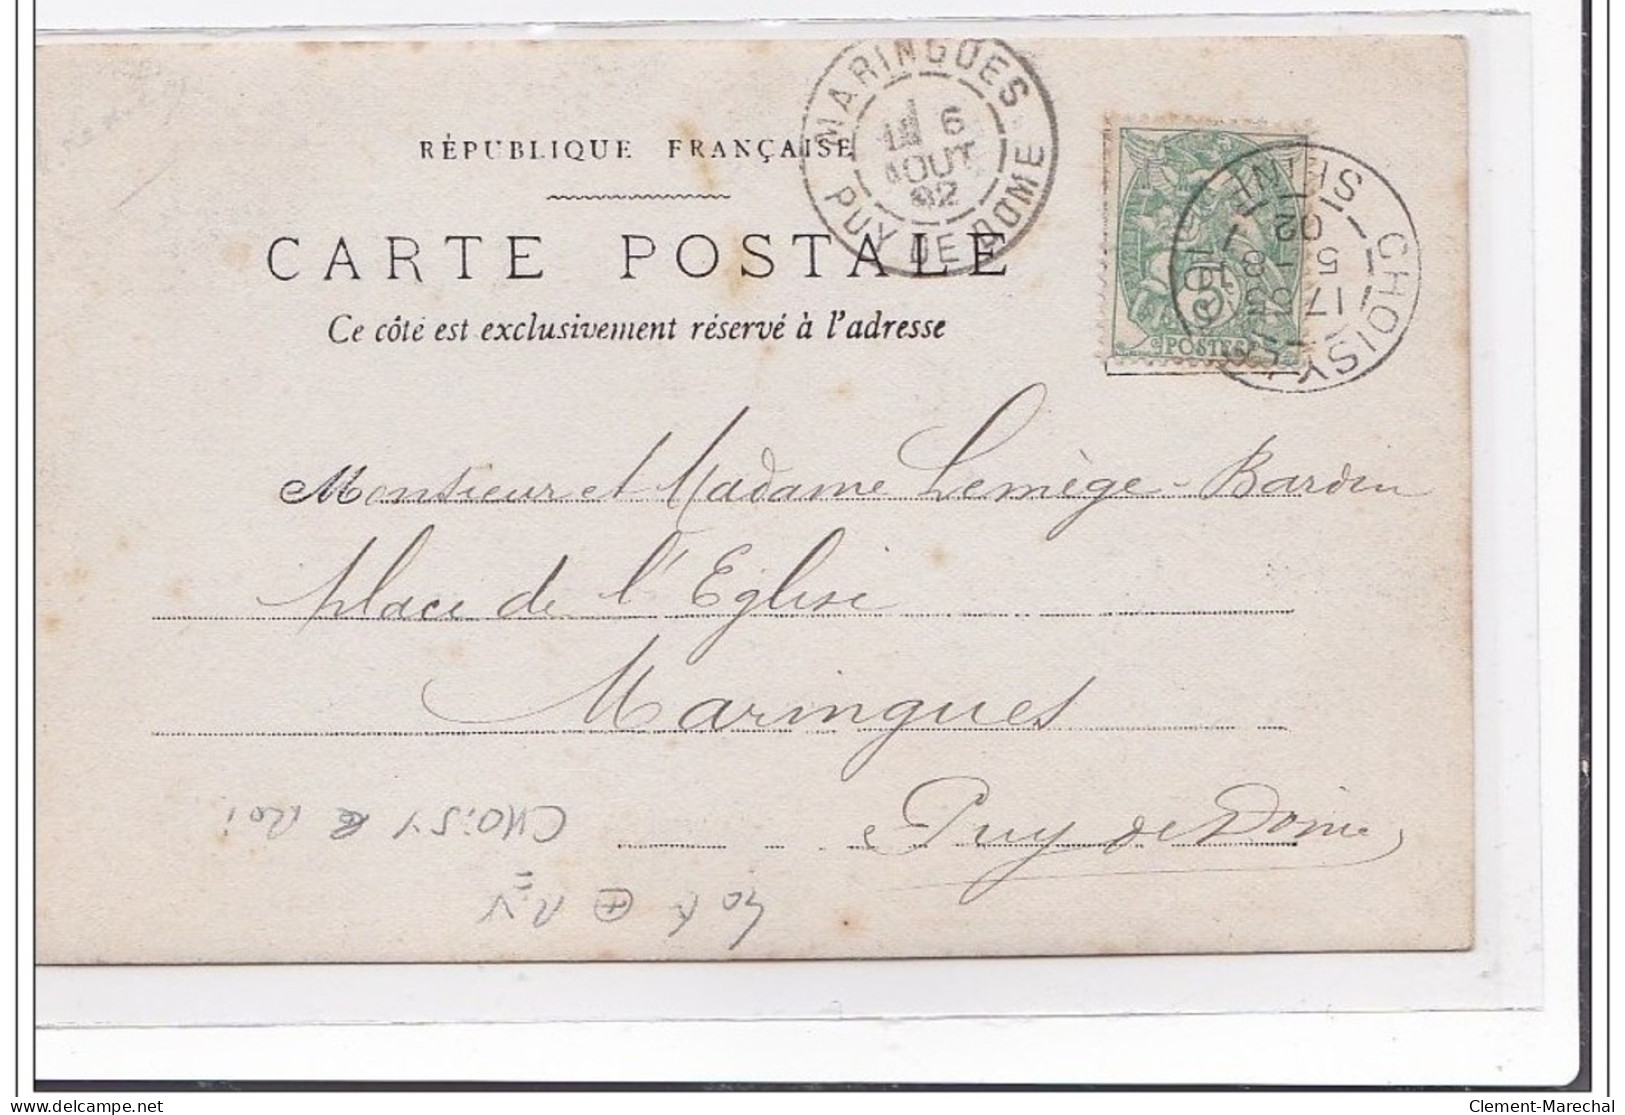 RÉPUBLIQUE FRANÇAISE
MARINGUES
6
AOUT
02
PUY DE DOME
CARTE POSTALE
Ce côté est exclusivement réservé à l'adresse
POSTES
CHOISY LE ROI
17
5 - 8
02
SEINE
Monsieur et Madame Lemège-Bardin
place de l'Eglise
Maringues
Puy de Dôme
CHOISY le Roi
delcampe.net
Clement-Marechal